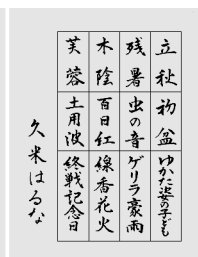 立秋
初盆
ゆかた姿の子ども
残暑
虫の音
ゲリラ豪雨
木陰
百日紅
線香花火
芙蓉
土用波
終戦記念日
久米はるな